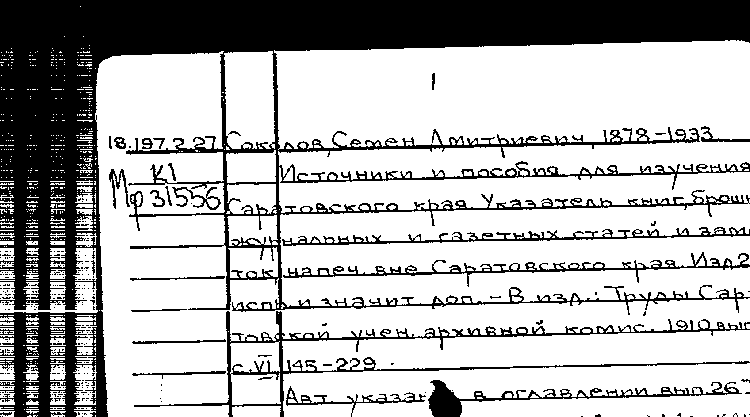 1
18.197.2.27 Соколов, Семен Дмитриевич, 1878-1933
К1 Источники и пособия для изучения
Мф 31556 Саратовского края Указатель книг, брошю
журнальных и газетных статей и зам
ток, напеч. вне Саратовского края. Изд. 2
испр и значит доп. - В изд.: Труды Сар
товской учен. архивной комис. 1910, вып
с. VI, 145-229.
Авт указан в оглавлении вып. 26